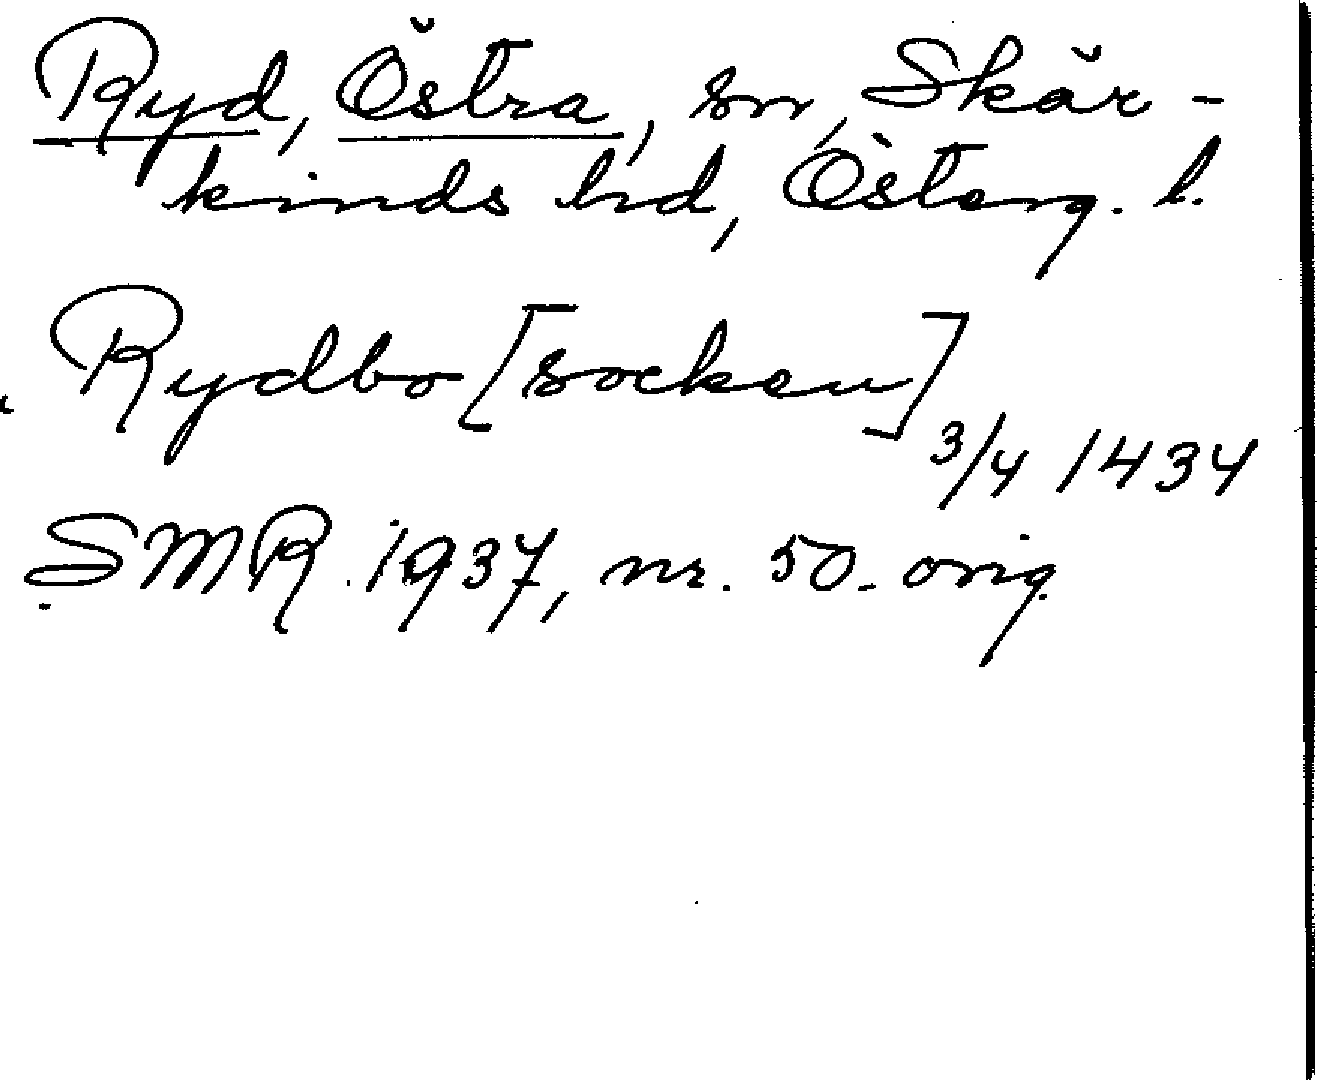 Ryd, Östra, sn, Skär-
kinds hd, Österg. l.
Rydbo [socken]
3/4 1434
SMR 1937, nr. 50. orig.